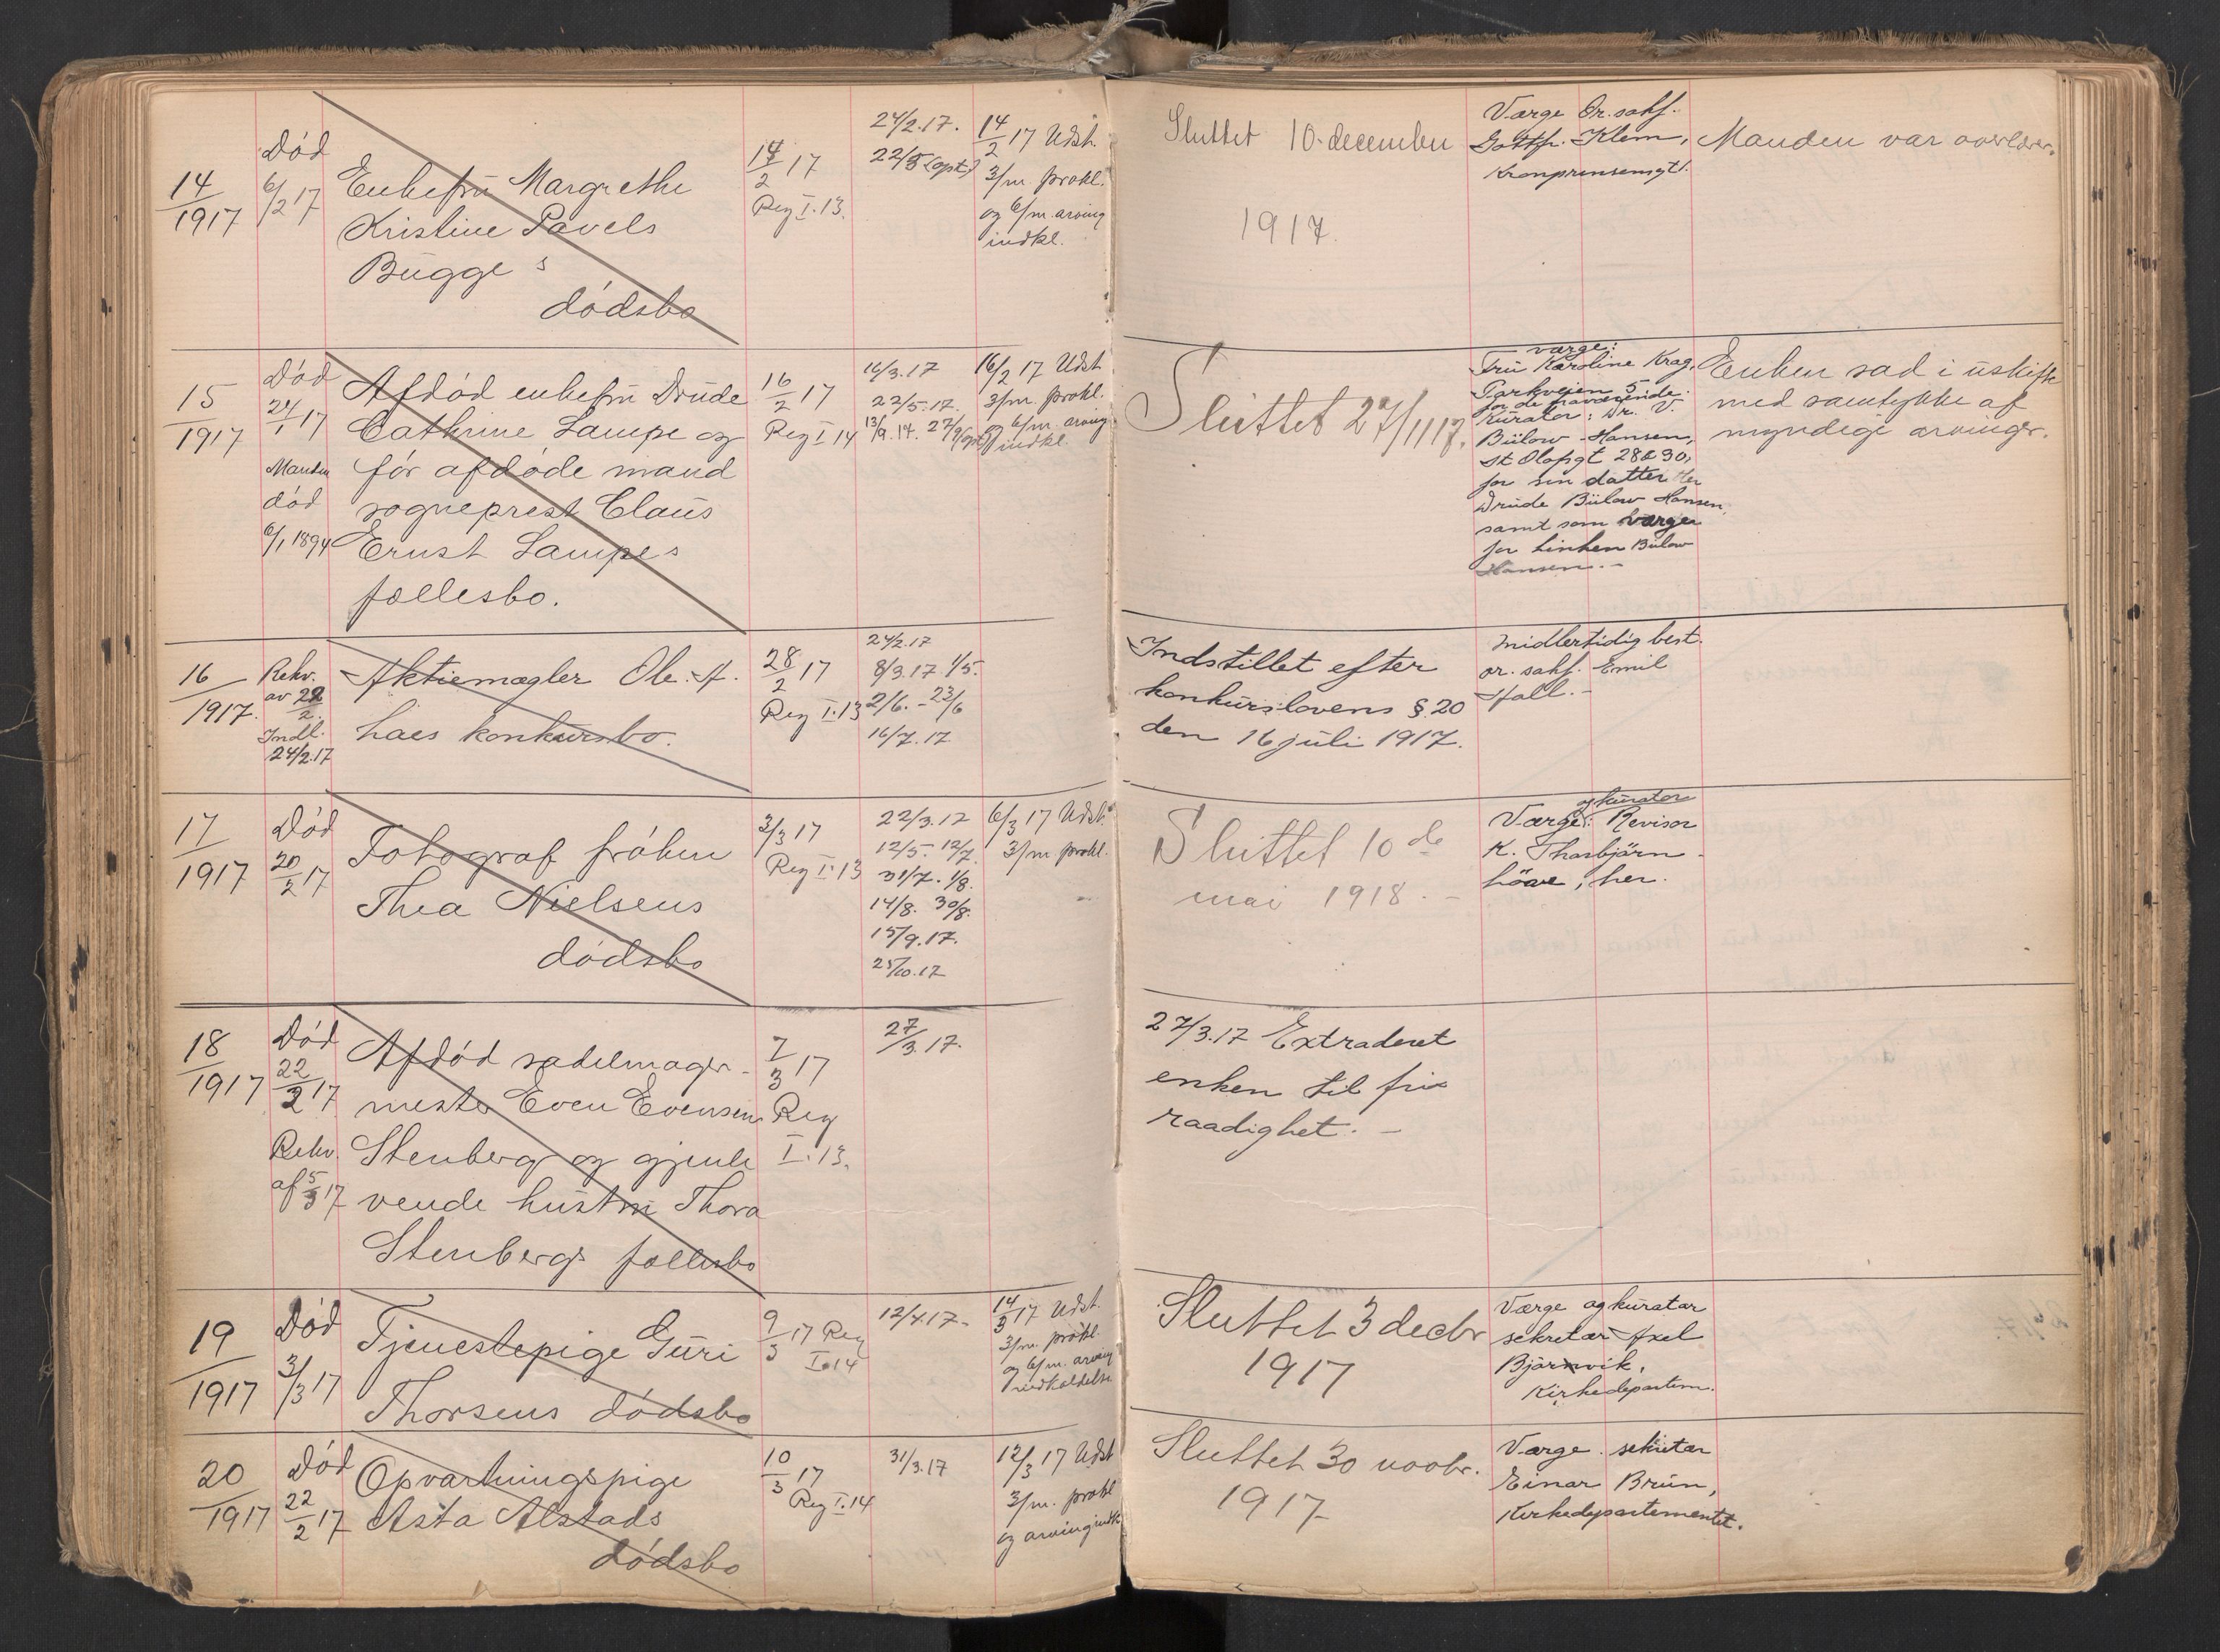 14
1917
Död
6/2 17
Enkefru Margrethe
Kristine Pavels
Bugge s
dödsbo
14/2 17
Reg I. 13.
24/2.17.
22/5 (opt)
14/2 17 Udst.
3/m prokl.
og 6/m. arving
indkl.
Sluttet 10. december
1917.
Værge Or. sakf.
Gottfr. Klem,
Kronprinsensgt.
Manden var overlærer.
15
1917
Död
24/1 17
Manden
död
6/1 1894
Afdöd enkefru Drude
Cathrine Lampe og
för afdöde mand
sogneprest Claus
Ernst Lampes
fællesbo.
16/2 17
Reg I 14
16/3.17
22/5.17.
13/9.17. 27/9 (opt)
16/2 17 Udst
3/m. prokl.
og 6/m. arving
indkl
Sluttet 27/11 17.
værge:
Fru Karoline Krag,
Parkvejen 5
for de fraværende.
Kurator: Dr. V.
Bülow-Hansen,
St Olafsgt 28 & 30,
for sin datter
Drude Bülow Hansen,
samt som værge
for Linken Bülow
Hansen. -
Enken sad i uskifte
med samtykke af
myndige arvinger.
16
1917.
Rekv.
av 22/2.
Indl.
24/2.17
Aktiemægler Ole. A.
Laes konkursbo.
28/2 17
Reg I. 13
24/2.17
8/3.17 1/5.
2/6. - 23/6
16/7.17
Indstillet efter
konkurslovens § 20
den 16 juli 1917.
Midlertidig best.
or. sakf. Emil
Hall. -
17
1917
Död
20/2 17
Fotograf fröken
Thea Nielsens
dödsbo
3/3 17
Reg I. 13
22/3.17
12/5. 12/7.
31/7. 1/8.
14/8. 30/8.
15/9.17.
25/10.17
6/3 17 Udst.
3/m prokl.
Sluttet 10 de
mai 1918. -
og kurator
Værge: Revisor
K. Thorbjörn-
, her.
18
1917
Död
22/2 17
Rekv.
af 5/3 17
Afdöd sadelmager-
mester Even Evensen
Stenberg og gjenle
vende hustru Thora
Stenbergs fællesbo
7/3 17
Reg
I. 13.
27/3.17.
27/3.17 Extraderet
enken til fri
raadighet. -
19
1917
Död
3/3 17
Tjenestepige Guri
Thorsens dödsbo
9/3 17 Reg
I. 14
12/4.17-
14/3 17 Udst.
3/m. prokl.
og 6/m. arving
indkaldelse
Sluttet 3 decbr
1917
Værge og kurator
sekretær Axel
Björnvik,
Kirkedepartem.
20
1917
Död
22/2 17
Opvartningspige
Asta Alstads
dödsbo
10/3 17
Reg I. 14
31/3.17
12/3 17 Udst
3/m. prokl
og arvingindk
Sluttet 30 novbr.
1917-
Værge. sekretær
Einar Brun,
Kirkedepartementet.